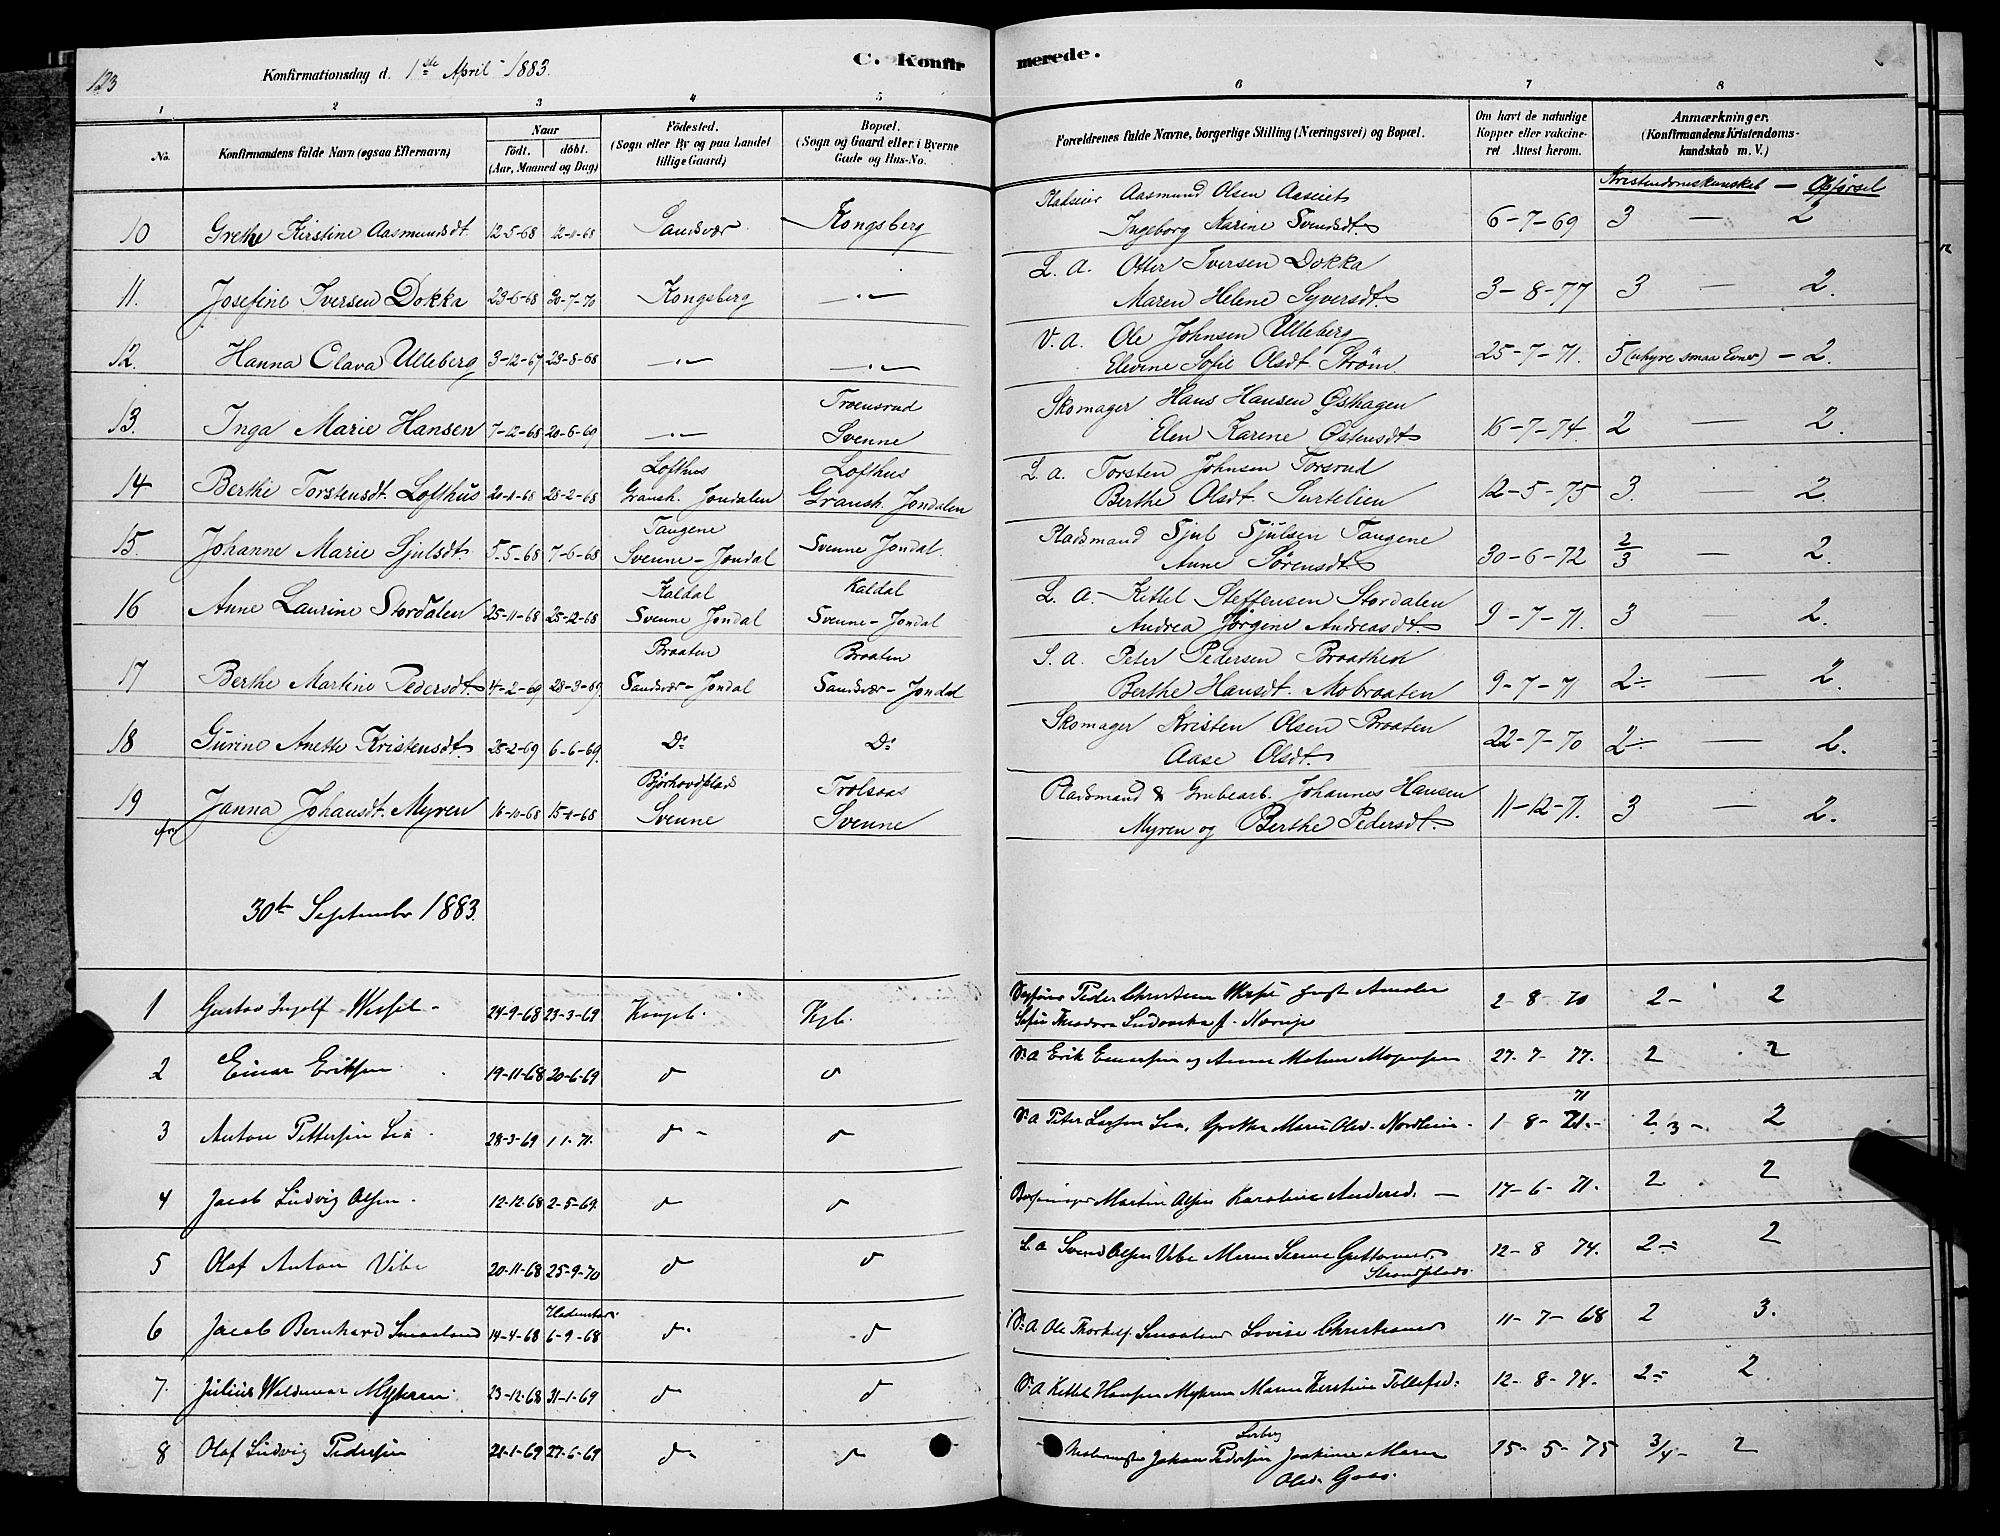 123
Konfirmationsdag d. 1ste April 1883.
C. Konfirmerede.
1 2 3 4 5 6 7 8
No.
Konfirmandens fulde Navn (ogsaa Efternavn)
Naar
födt. döbt.
(Aar, Maaned og Dag)
Födested.
(Sogn eller By og paa Landet
tillige Gaard)
Bopæl.
(Sogn og Gaard eller i Byerne
Gade og Hus-No.
Forældrenes fulde Navne, borgerlige Stilling (Næringsvei) og Bopæl.
Om havt de naturlige
Kopper eller vakcineret
Attest herom.
Anmærkninger.
(Konfirmandens Kristendomskundskab
m. V.)
Kristendomskunskab — Opförsel
10 Grethe Kirstine Aasmundsdt. 12-5-68 12-11-68 Sandsvær Kongsberg
Aasmund Olsen Aaseiet
Ingeborg Karine Svendsdt. 6-7-69 3 — 2
11. Josefine Iversen Dokka 23-6-68 20-7-70 Kongsberg —"—
L. A. Otter Iversen Dokka
Maren Helene Syversdt. 3-8-77 3 — 2.
12. Hanna Olava Ulleberg 3-12-67 23-8-68 —"— —"—
V. A. Ole Johnsen Ulleberg
Elevine Sofie Olsdt. Ström 25-7-71. 5 (uhyre smaa Evner) — 2.
13. Inga Marie Hansen 7-12-68 20-6-69 —"— Troensrud
Svenne
Skomager Hans Hansen Østhagen
Elen Karene Østensdt. 16-7-74. 2 — 2.
14 Berthe Torstensdt. Lofthus 20-1-68 23-2-68 Lofthus
Gransh. Jondalen
Lofthus
Gransh. Jondalen
L. A. Torsten Johnsen Torsrud
Berthe Olsdt. Surtelien 12-5-75 3. — 2.
15. Johanne Marie Sjulsdt. 5-5-68 7-6-68 Tangene
Svenne-Jondal
Svenne Jondal.
Pladsmand Sjul Sjulsen Tangene
Anne Sörensdt. 30-6-72 2/3 — 2.
16 Anne Laurine Stordalen 25-11-68 25-12-68 Kaldal
Svenne Jondal
Kaldal
Svenne-Jondal
L. A. Kittel Steffensen Stordalen
Andrea Jörgine Andreasdt. 9-7-71. 3 2.
17 Berthe Martine Pedersdt. 4-2-69 28-3-69. Braaten
Sandsvær-Jondal
Braaten
Sandsvær-Jondal
S. A. Peter Pedersen Braathen
Berthe Hansdt. Mobraaten 9-7-71 2÷ — 2.
18 Gurine Anette Kristensdt. 28-2-69 6-6-69. Do Do
Skomager Kristen Olsen Braaten
Aase Olsdt. 22-7-70 2÷ — 2.
19 Janna Johansdt. Myren 16-10-68 15-11-68 Björhovdplad
Svenne
Trolsaas
Svenne
Pladsmand & Grubearb. Johannes Hansen
Myren og Berthe Pedersdt. 11-12-71. 3 — 2.
30te September 1883.
1 Gustav Ingolf Wessel 24-9-68 23-3-69 Kongsb. Kgb.
Peder Christian
2-8-70 2- 2
2 Einar Eriksen 19-11-68 20-6-69 d d
V. A Erik Einarsen og Anne 27-7-77. 2 2
3 Anton Pettersen Lia 28-3-69 1-1-71. d d
V. A Peter Larsen Lia, Grethe Marie Olsd. Nordlien 1-8-71.- 71 2/3 - 2
4 Jacob Ludvig Olsen 12-12-68 2-5-69. d d
Martin Olsen Karoline Andersd. — 17-6-71. 2 2
5 Olaf Anton Vibe 20-11-68 25-9-70 d d
L. A Svend Olsen Vibe Maren Serine Guttormsd.
Strandplads. 12-8 74. 2÷ 2
6 Jacob Bernhard Smaaland 14-4-68 6-9-68 d d
V. A Ole Thorkels. Smaaland Lovise Christiansd 11-7-68 2 3.
7. Julius Waldemar Myhren 23-12-68 31-1-69 d d
V. A Kittel Hansen Myhren Maren Kirstine Tollefsd. 12-8-74. 2÷ 2
8 Olaf Ludvig Pedersen 21-1-69 27-6-69 d d
Johan Pedersen Joakime Maren
Olsd. Gaas. 15-5-75 3/4- 2